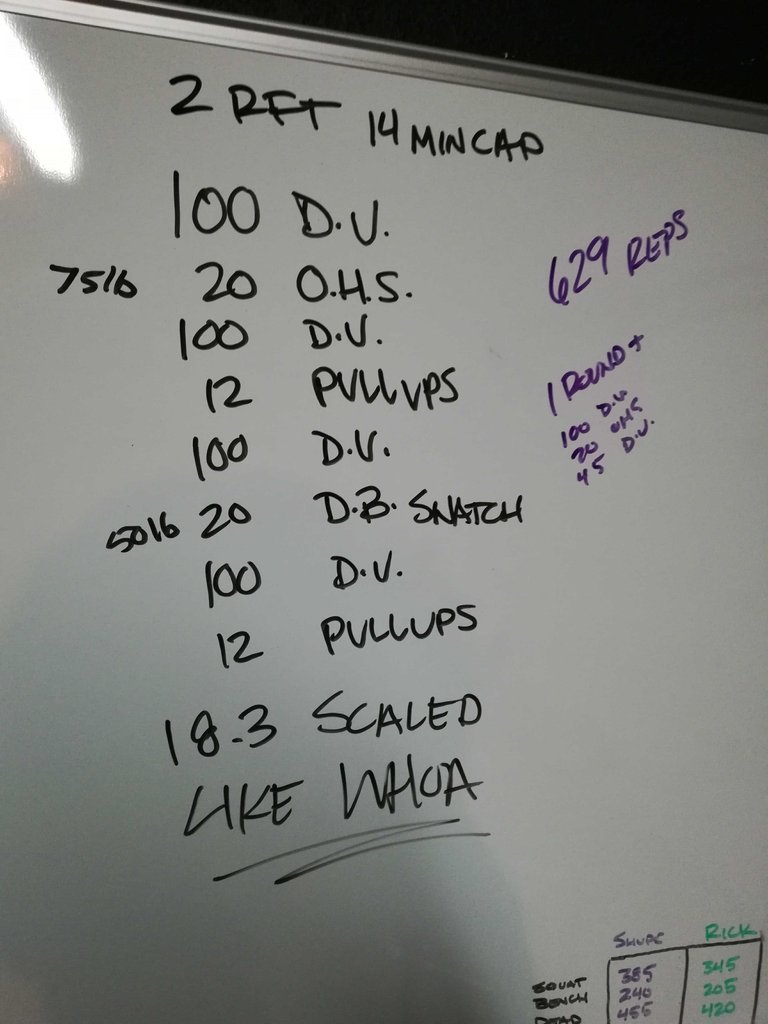 2 RFT 14 MIN CAP
100 D.U.
75lb 20 O.H.S.
100 D.U.
12 PULLUPS
100 D.U.
50lb 20 D.B. SNATCH
100 D.U.
12 PULLUPS
18.3 SCALED
LIKE WHOA
629 REPS
1 ROUND +
100 D.U.
20 OHS
45 D.U.
SHUPE RICK
SQUAT 385 345
BENCH 240 205
DEAD 455 420